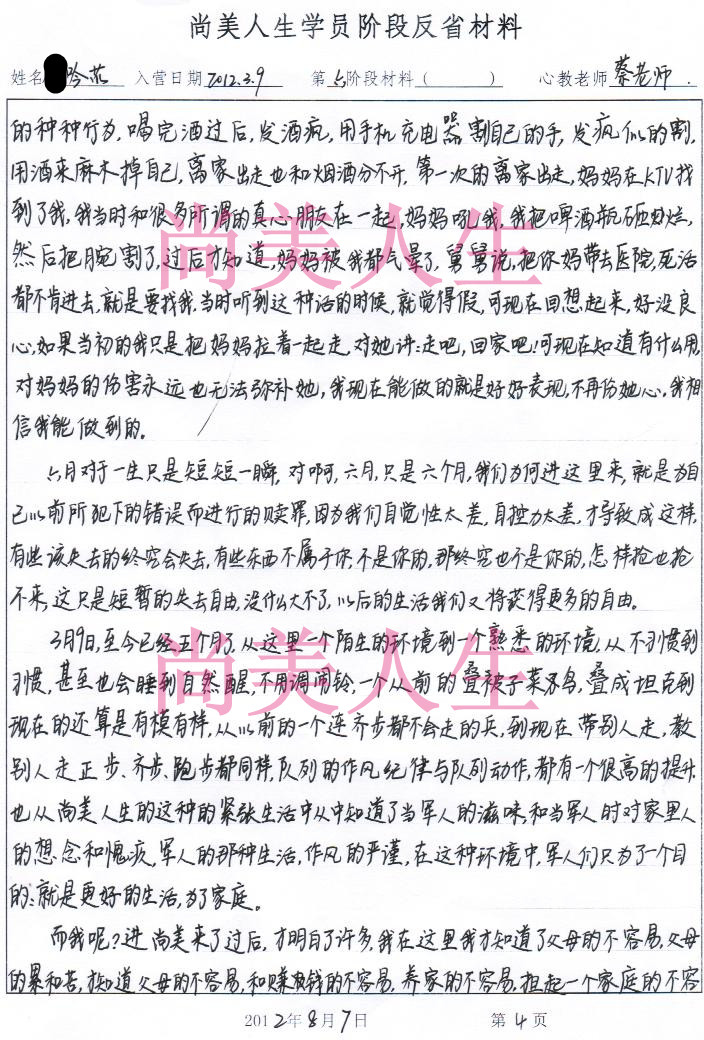 尚美人生学员阶段反省材料
姓名 吟芯 入营日期 2012.3.9 第六阶段材料( ) 心教老师 蔡老师.
的种种行为,喝完酒过后,发酒疯,用手机充电器割自己的手,发疯似的割,
用酒来麻木掉自己,离家出走也和烟酒分不开,第一次的离家出走,妈妈在KTV找
到了我,我当时和很多所谓的真心朋友在一起,妈妈吼我,我把啤酒瓶砸烂,
然后把腕割了,过后才知道,妈妈被我都气晕了,舅舅说,把你妈带去医院,死活
都不肯进去,就是要找我,当时听到这种话的时候,就觉得假,可现在回想起来,好没良
心,如果当初的我只是把妈妈拉着一起走,对她讲:走吧,回家吧!可现在知道有什么用,
对妈妈的伤害永远也无法弥补她,我现在能做的就是好好表现,不再伤她心,我相
信我能做到的。
六月对于一生只是短短一瞬,对啊,六月,只是六个月,我们为何进这里来,就是为自
己以前所犯下的错误而进行的赎罪,因为我们自觉性太差,自控力太差,才导致成这样,
有些该失去的终究会失去,有些东西不属于你,不是你的,那终究也不是你的,怎样抢也抢
不来,这只是短暂的失去自由,没什么大不了,以后的生活我们又将获得更多的自由。
3月9日,至今已经五个月了,从这里一个陌生的环境到一个熟悉的环境,从不习惯到
习惯,甚至也会睡到自然醒,不用调闹铃,一个从前的叠被子菜鸟,叠成坦克到
现在的还算是有模有样,从以前的一个连齐步都不会走的兵,到现在带别人走,教
别人走正步、齐步、跑步都同样,队列的作风纪律与队列动作,都有一个很高的提升,
也从尚美人生的这种的紧张生活中从中知道了当军人的滋味,和当军人时对家里人
的想念和愧疚,军人的那种生活,作风的严谨,在这种环境中,军人们只为了一个目
的:就是更好的生活,为了家庭。
而我呢?进尚美来了过后,才明白了许多,我在这里我才知道了父母的不容易,父母
的累和苦,才知道父母的不容易,和赚钱的不容易,养家的不容易,担起一个家庭的不容
2012年8月7日 第4页
尚美人生
尚美人生